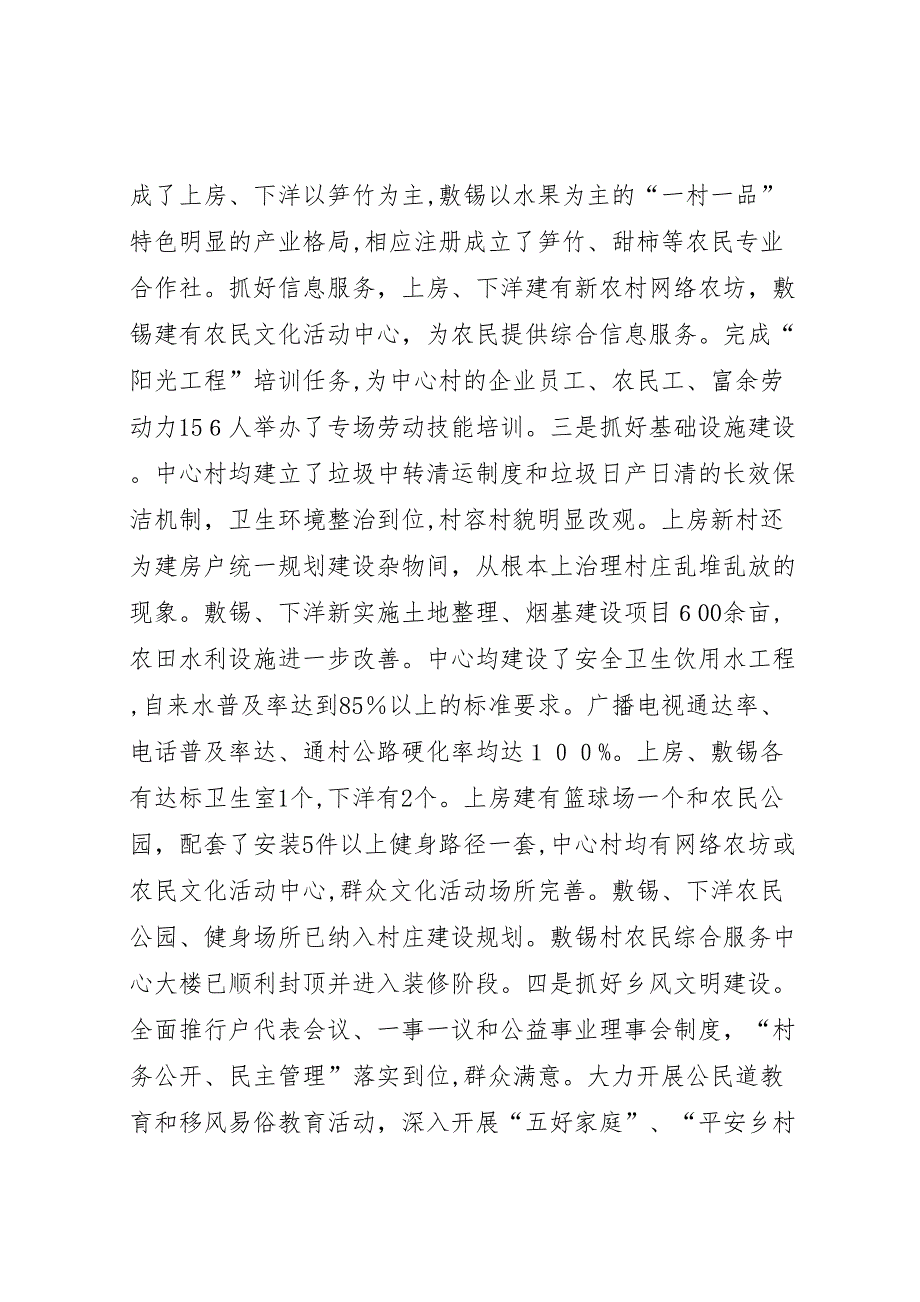 成了上房、下洋以笋竹为主,敷锡以水果为主的“一村一品”
特色明显的产业格局,相应注册成立了笋竹、甜柿等农民专业
合作社。抓好信息服务，上房、下洋建有新农村网络农坊，敷
锡建有农民文化活动中心，为农民提供综合信息服务。完成“
阳光工程”培训任务,为中心村的企业员工、农民工、富余劳
动力15６人举办了专场劳动技能培训。三是抓好基础设施建设
。中心村均建立了垃圾中转清运制度和垃圾日产日清的长效保
洁机制，卫生环境整治到位,村容村貌明显改观。上房新村还
为建房户统一规划建设杂物间，从根本上治理村庄乱堆乱放的
现象。敷锡、下洋新实施土地整理、烟基建设项目６00余亩,
农田水利设施进一步改善。中心均建设了安全卫生饮用水工程
,自来水普及率达到85％以上的标准要求。广播电视通达率、
电话普及率达、通村公路硬化率均达１００%。上房、敷锡各
有达标卫生室1个,下洋有2个。上房建有篮球场一个和农民公
园，配套了安装5件以上健身路径一套,中心村均有网络农坊或
农民文化活动中心,群众文化活动场所完善。敷锡、下洋农民
公园、健身场所已纳入村庄建设规划。敷锡村农民综合服务中
心大楼已顺利封顶并进入装修阶段。四是抓好乡风文明建设。
全面推行户代表会议、一事一议和公益事业理事会制度，“村
务公开、民主管理”落实到位,群众满意。大力开展公民道教
育和移风易俗教育活动，深入开展“五好家庭”、“平安乡村